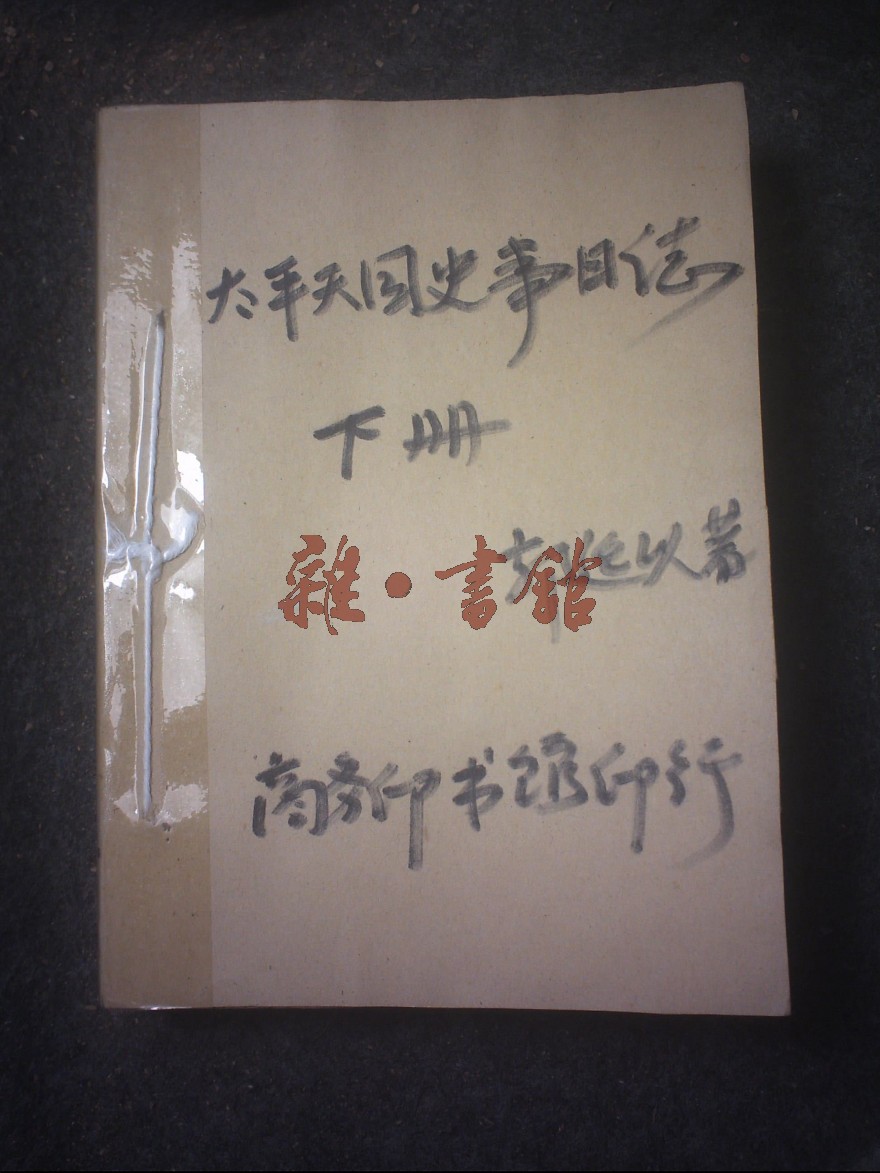 太平天国史事日誌
下册
郭廷以著
雜·書館
商务印书馆印行